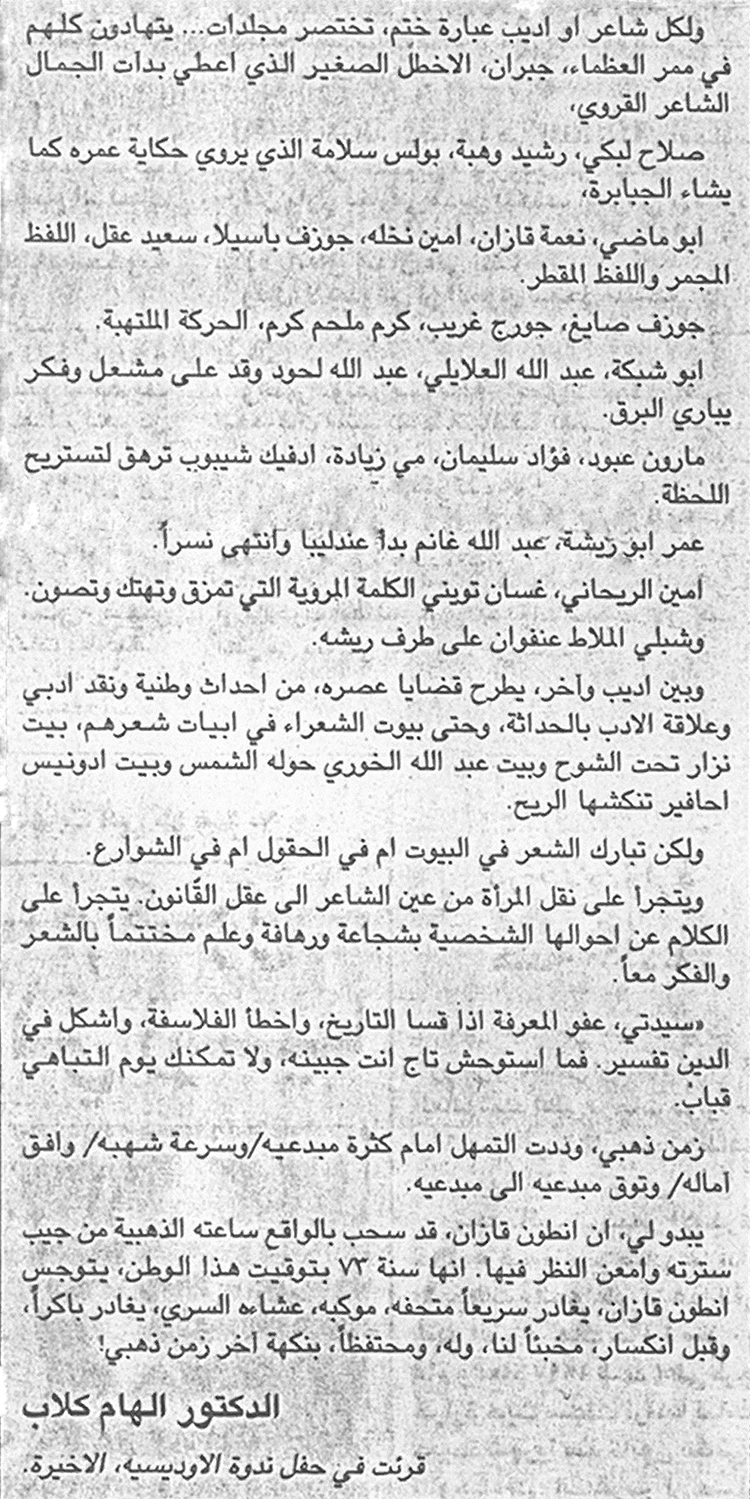 ولكل شاعر او اديب عبارة ختم، تختصر مجلدات... يتهادون كلهم
في ممر العظماء، جبران، الاخطل الصغير الذي اعطي بذات الجمال
الشاعر القروي،
صلاح لبكي، رشيد وهبة، بولس سلامة الذي يروي حكاية عمره كما
يشاء الجبابرة،
ابو ماضي، نعمة قازان، امين نخله، جوزف باسيلا، سعيد عقل، اللفظ
المجمر واللفظ المقطر.
جوزف صايغ، جورج غريب، كرم ملحم كرم، الحركة الملتهبة.
ابو شبكة، عبد الله العلايلي، عبد الله لحود وقد على مشعل وفكر
يباري البرق.
مارون عبود، فؤاد سليمان، مي زيادة، ادفيك شيبوب ترهق لتستريح
اللحظة.
عمر ابو ريشة، عبد الله غانم بدأ عندليبا وانتهى نسراً.
امين الريحاني، غسان تويني الكلمة المروية التي تمزق وتهتك وتصون.
وشبلي الملاط عنفوان على طرف ريشه.
وبين اديب وآخر، يطرح قضايا عصره، من احداث وطنية ونقد ادبي
وعلاقة الادب بالحداثة، وحتى بيوت الشعراء في ابيات شعرهم، بيت
نزار تحت الشوح وبيت عبد الله الخوري حوله الشمس وبيت ادونيس
احافير تنكشها الريح.
ولكن تبارك الشعر في البيوت ام في الحقول ام في الشوارع.
ويتجرأ على نقل المرأة من عين الشاعر الى عقل القانون. يتجرأ على
الكلام عن احوالها الشخصية بشجاعة ورهافة وعلم مختتماً بالشعر
والفكر معاً.
«سيدتي، عفو المعرفة اذا قسا التاريخ، واخطأ الفلاسفة، واشكل في
الدين تفسير. فما استوحش تاج انت جبينه، ولا تمكنك يوم التباهي
قبابُ.
زمن ذهبي، وددت التمهل امام كثرة مبدعيه/وسرعة شهبه/ وافق
آماله/ وتوق مبدعيه الى مبدعيه.
يبدو لي، ان انطون قازان، قد سحب بالواقع ساعته الذهبية من جيب
سترته وامعن النظر فيها. انها سنة ٧٣ بتوقيت هذا الوطن، يتوجس
انطون قازان، يغادر سريعاً متحفه، موكبه، عشاءه السري، يغادر باكراً،
وقبل انكسار، مخبئاً لنا، وله، ومحتفظاً، بنكهة آخر زمن ذهبي!
الدكتور الهام كلاب
قرئت في حفل ندوة الاوديسيه، الاخيرة.